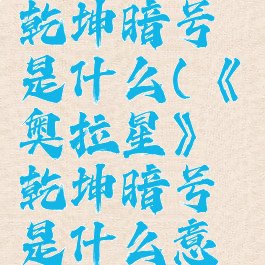 乾坤暗号
是什么(《
奥拉星》
乾坤暗号
是什么意